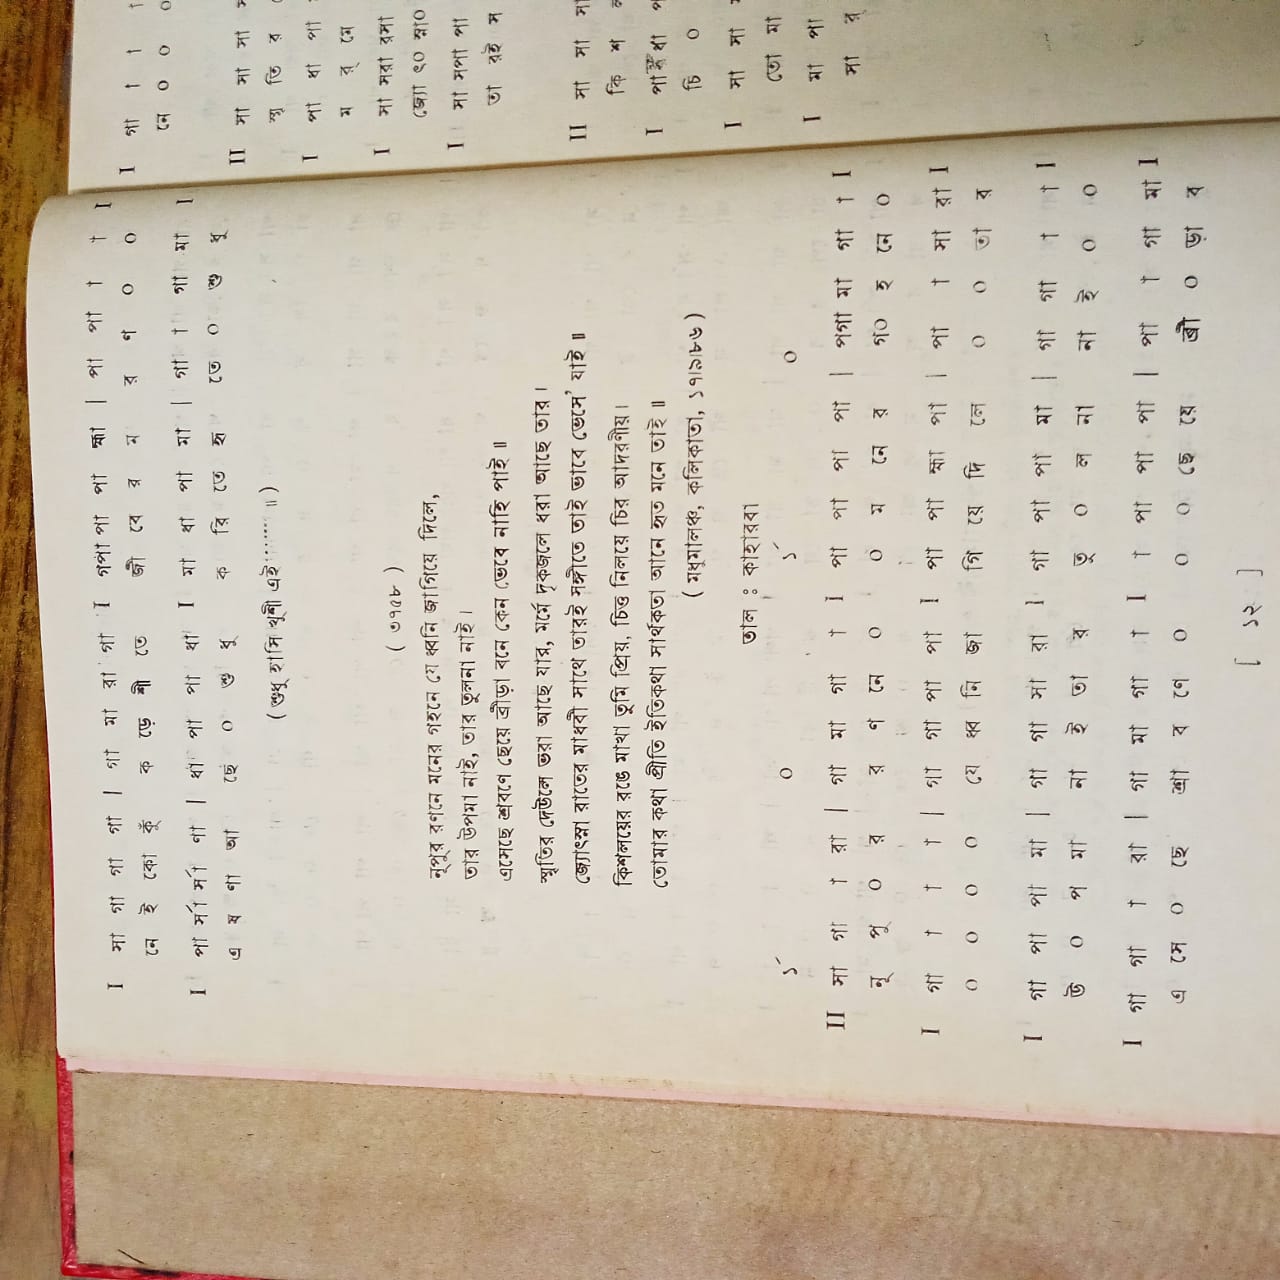 I সা গা গা গা | গা মা রা গা I গপা পা পা হ্মা | পা পা া া I
নে ই কো কুঁ ক ড়ে শী তে জী বে র ম র ণ ০ ০
I পা র্সা র্সা ণা | ধা পা পা ধা I মা ধা পা মা | গা া গা মা I
এ ষ ণা আ ছে ০ শু ধু ক রি তে হৃ তে ০ শু ধু
( শুধু হাসি খুশী এই······· ॥ )
( ৩৭৫৮ )
নূপুর রণনে মনের গহনে যে ধ্বনি জাগিয়ে দিলে,
তার উপমা নাই, তার তুলনা নাই ।
এসেছে শ্রবণে ছেয়ে ব্রীড়া বনে কেন ভেবে নাহি পাই ॥
স্মৃতির দেউলে ভরা আছে যার, মর্মে দৃকজলে ধরা আছে তার ।
জ্যোৎস্না রাতের মাধবী সাথে তারই সঙ্গীতে তাই ভাবে ভেসে' যাই ॥
কিশলয়ের রঙে মাখা তুমি প্রিয়, চিত্ত নিলয়ে চির আদরণীয় ।
তোমার কথা প্রীতি ইতিকথা সার্থকতা আনে হৃত মনে তাই ॥
( মধুমালঞ্চ, কলিকাতা, ১৭।৯।৮৬ )
তাল : কাহারবা
১´ ০ ১´ ০
II সা গা া রা | গা মা গা া I পা পা পা পা | পগা মা গা া I
নূ পু ০ র র ণ নে ০ ০ ম নে র গ০ হ নে ০
I গা া া া | গা গা পা পা I পা পা হ্মা পা | পা া সা রা I
০ ০ ০ ০ যে ধ্ব নি জা গি য়ে দি লে ০ ০ তা র
I গা পা পা মা | গা গা সা রা I গা পা পা মা | গা গা া া I
উ ০ প মা না ই তা র তু ০ ল না না ই ০ ০
I গা গা া রা | গা মা গা া I া পা পা পা | পা া গা মা I
এ সে ০ ছে শ্রা ব ণে ০ ০ ০ ছে য়ে ব্রী ০ ড়া ব
[ ১২ ]
I গা া া া
নে ০ ০ ০
II সা সা সা
স্মৃ তি র
I পা ধা পা
ম র্ মে
I সা সরা রসা
জ্যো ৎ০ স্না০
I সা সপা পা
তা রই স
II সা সা সা
কি শ
I
চি ০
I সা সা
তো মা
I মা পা
সা র্